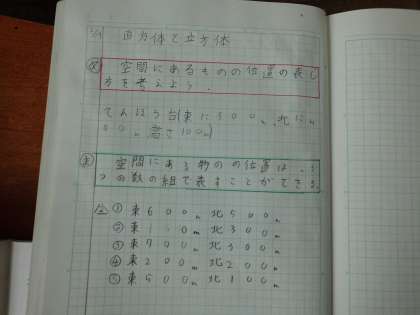 直方体と立方体
空間にあるものの位置の表し
方を考えよう。
てんぼう台(東に300m、北に4
00m、高さ100m)
空間にある物の位置は、3
つの数の組で表すことができる
① 東600m 北500m
② 東100m 北300m
③ 東700m 北300m
④ 東200m 北200m
⑤ 東500m 北100m